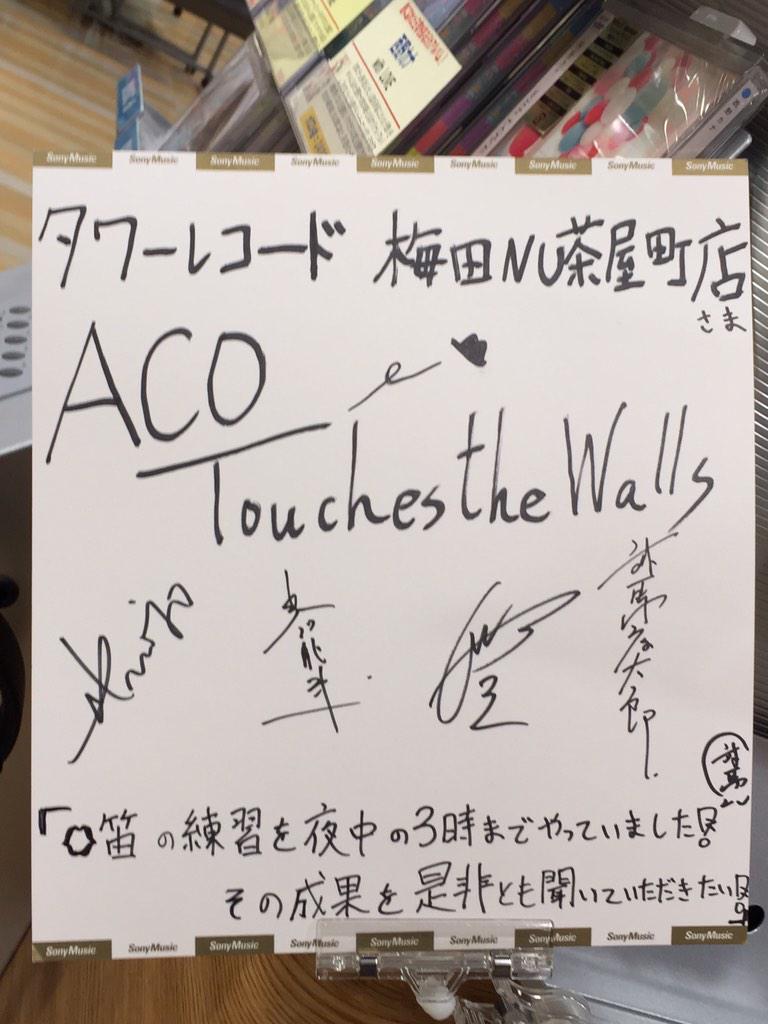 SonyMusic SonyMusic SonyMusic SonyMusic SonyMusic SonyMusic SonyMusic SonyMusic SonyMusic
タワーレコード 梅田NU茶屋町店
さま
ACO
Touches the Walls
対馬祥太郎
対馬
「口笛の練習を夜中の3時までやっていました!!
その成果を是非とも聞いていただきたい!!」
SonyMusic SonyMusic SonyMusic SonyMusic SonyMusic SonyMusic SonyMusic SonyMusic SonyMusic